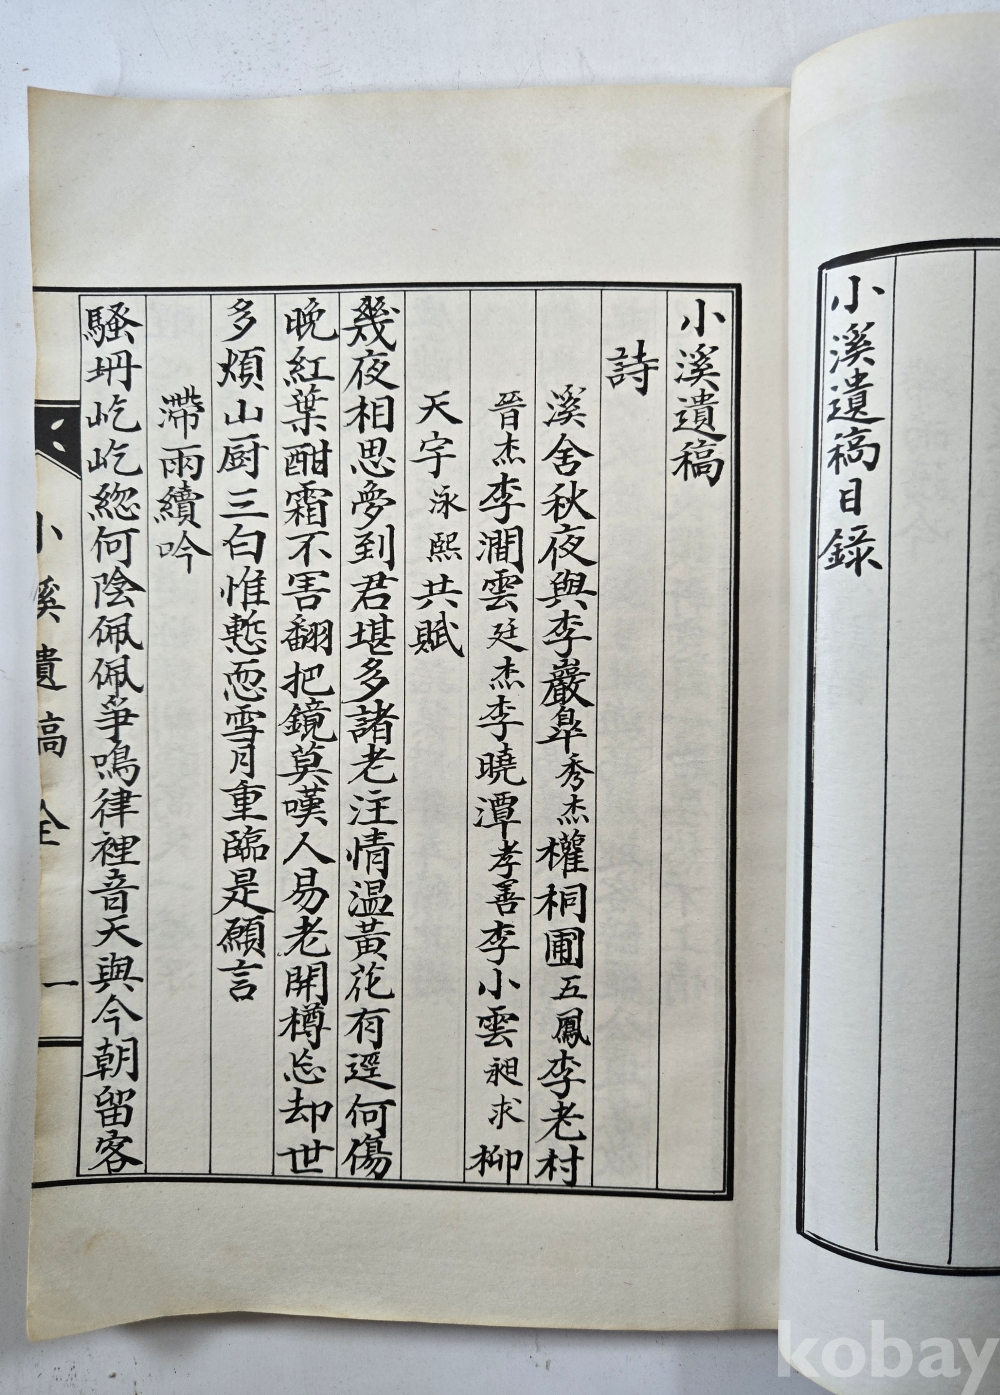 小溪遺稿目錄
小溪遺稿
詩
溪舍秋夜與李巖皐秀杰權桐圃五鳳李老村
晉杰李澗雲廷杰李曉潭孝善李小雲昶求柳
天宇泳熙共賦
幾夜相思夢到君堪多諸老注情温黃花有遅何傷
晩紅葉酣霜不害翻把鏡莫嘆人易老開樽忘却世
多煩山厨三白惟慙恧雪月重臨是願言
滯雨續吟
騷坍屹屹総何陰佩佩爭鳴律裡音天與今朝留客
小溪遺稿 全 一
kobay